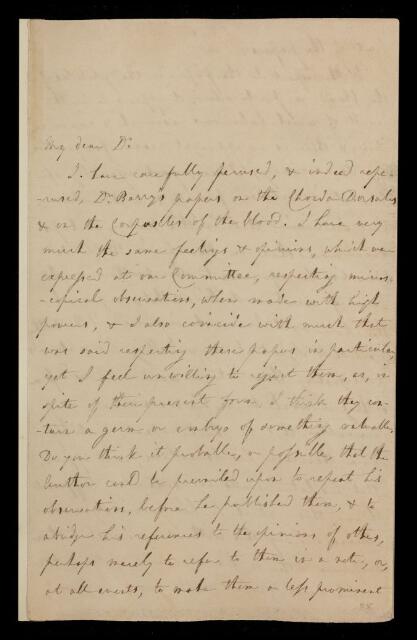 My dear Dr
I have carefully perused, & indeed repe-
-rused, Dr. Barry's papers on the Chorda Dorsalis
& on the Corpuscles of the blood. I have very
much the same feelings & opinions, which were
expressed at our Committee, respecting micros-
-copical observations, when made with high
powers, & I also coincide with much that
was said respecting these papers in particular,
yet I feel unwilling to reject them, as, in
spite of their present form, I think they con-
-tain a germ or embryo of something valuable.
Do you think it probable, or possible, that the
Author could be prevailed upon to repeat his
observations, before he published them, & to
abridge his references to the opinions of others,
perhaps merely to refer to them in a note, or,
at all events, to make them a less prominent